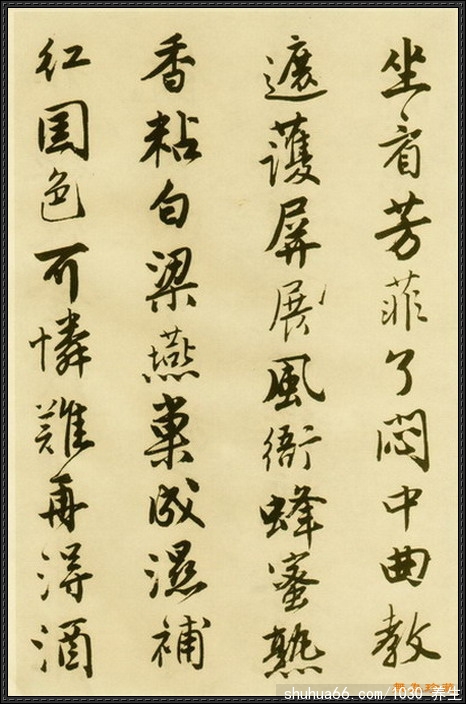 坐看芳菲了悶中曲教
遮護屏展風衙蜂蜜熟
香粘白梁燕巢成濕補
紅国色可憐難再得酒
shuhua66.com/1030 养生